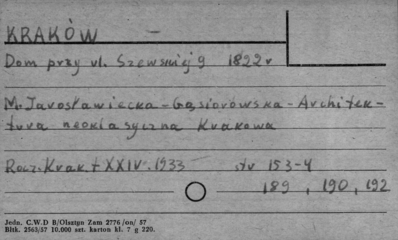 KRAKÓW —
Dom przy ul. Szewskiej 9 1822 r
M. Jarosławiecka-Gąsiorowska - Architek-
tura neoklasyczna Krakowa
Rocz. Krak. t XXIV. 1933 str 153-4
189, 190, 192
Jedn. C.W.D B/Olsztyn Zam 2776/on/ 57
Bltk. 2563/57 10.000 szt. karton kl. 7 g 220.